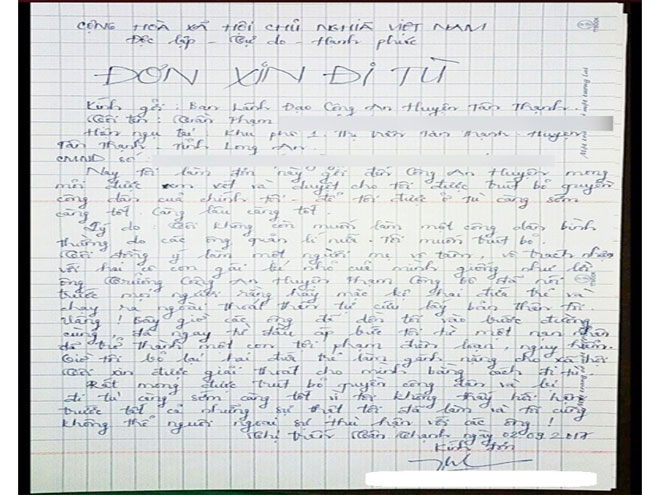 CỘNG HOÀ XÃ HỘI CHỦ NGHĨA VIỆT NAM
Độc lập - Tự do - Hạnh phúc
ĐƠN XIN ĐI TÙ
Kính gởi: Ban Lãnh Đạo Công An Huyện Tân Thạnh.
Tôi tên: Trần Phạm
Hiện ngụ tại: Khu phố 1. Thị trấn Tân Thạnh - Huyện
Tân Thạnh - Tỉnh Long An.
CMND số:
Nay tôi làm đơn này gởi đến Công An Huyện mong
mỏi được xem xét và duyệt cho tôi được trút bỏ quyền
công dân của chính tôi. để tôi được ở tù càng sớm
càng tốt. Càng lâu càng tốt.
Lý do: Tôi không còn muốn làm một công dân bình
thường do các ông quản lí nữa. Tôi muốn trút bỏ.
Tôi đồng ý làm một người mẹ vô tâm, vô trách nhiệm
với hai cô con gái bé nhỏ của mình giống như lời
ông Trưởng Công An Huyện Phạm Công Bố đã nói
trước mọi người rằng hãy mặc kệ hai đứa trẻ và
chạy ra ngoài thoát thân tự cứu lấy bản thân tôi
Vâng! Bây giờ các ông đã dồn tôi vào bước đường
cùng, đã ngay từ đầu áp bức tôi từ một nạn nhân
đã trở thành một con tội phạm điên loạn, nguy hiểm.
Giờ tôi bỏ lại hai đứa trẻ làm gánh nặng cho xã hội
Tôi xin được giải thoát cho mình bằng cách đi tù.
Rất mong được trút bỏ quyền công dân và bị
đi tù càng sớm càng tốt vì tôi không thấy hối hận
trước tất cả những sự thật tôi đã làm và tôi cũng
không thể nguôi ngoai sự thù hận với các ông!
Thị trấn Tân Thạnh ngày 02.09.2017
Kính đơn